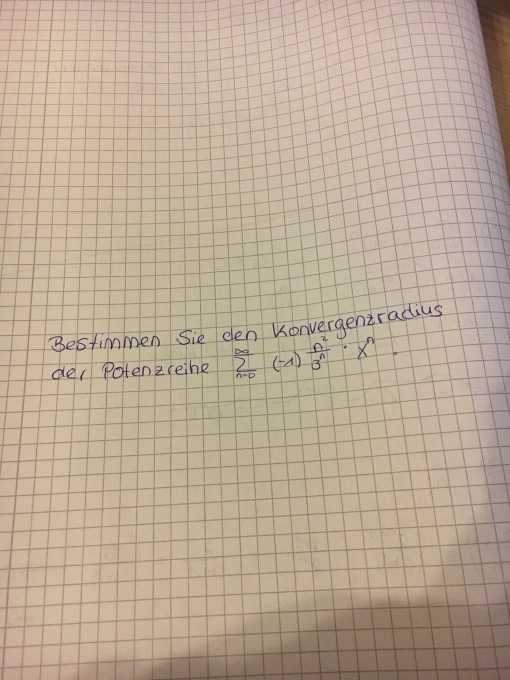 Bestimmen Sie den Konvergenzradius
der Potenzreihe $\sum_{n=0}^{\infty} (-1) \frac{n^2}{3^n} \cdot x^n$.